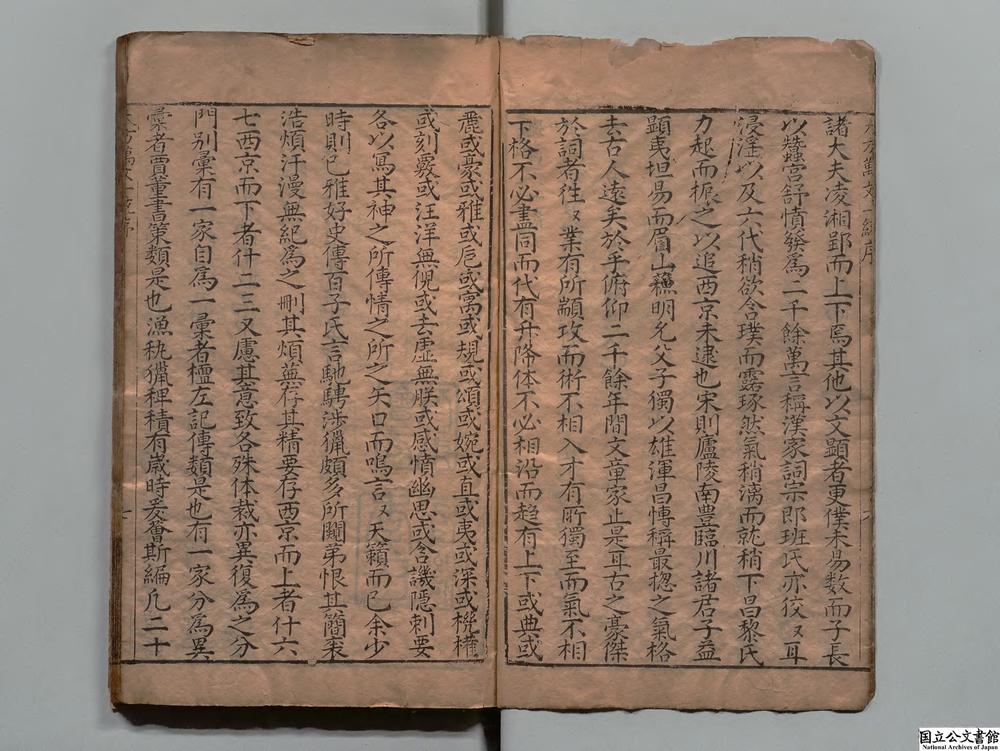 諸大夫凌湘郢而上下焉其他以文顯者更僕未易数而子長
以蠶宮舒憤發為二千餘萬言稱漢家詞宗郎班氏亦伇〻耳
浸滛以及六代稍欲含璞而露琢然氣稍漓而就稍下昌黎氏
力起而振之以追西京未逮也宋則廬陵南豊臨川諸君子益
顯夷坦易而眉山蘓明允父子獨以雄渾昌愽稱最揔之氣格
去古人遠矣於乎俯仰二千餘年間文章家止是耳古之豪傑
於詞者往〻業有所顓攻而術不相入才有所獨至而氣不相
下格不必盡同而代有升降体不必相沿而趋有上下或典或
麗或豪或雅或卮或寓或規或頌或婉或直或夷或深或機權
或刻覈或汪洋無倪或去虛無朕或感憤幽思或含譏隱刺要
各以冩其神之所傳情之所之矢口而鳴言〻天籟而已余少
時則已雅好史傳百子氏言馳騁涉獵頗多所闚弟恨其簡袠
浩煩汗漫無紀為之刪其煩蕪存其精要存西京而上者什六
七西京而下者什二三又慮其意致各殊体裁亦異復為之分
門別彚有一家自為一彚者檀左記傳類是也有一家分為異
彚者賈董書策類是也漁秇獵稗積有歲時爰薈斯編凢二十
国立公文書館
National Archives of Japan